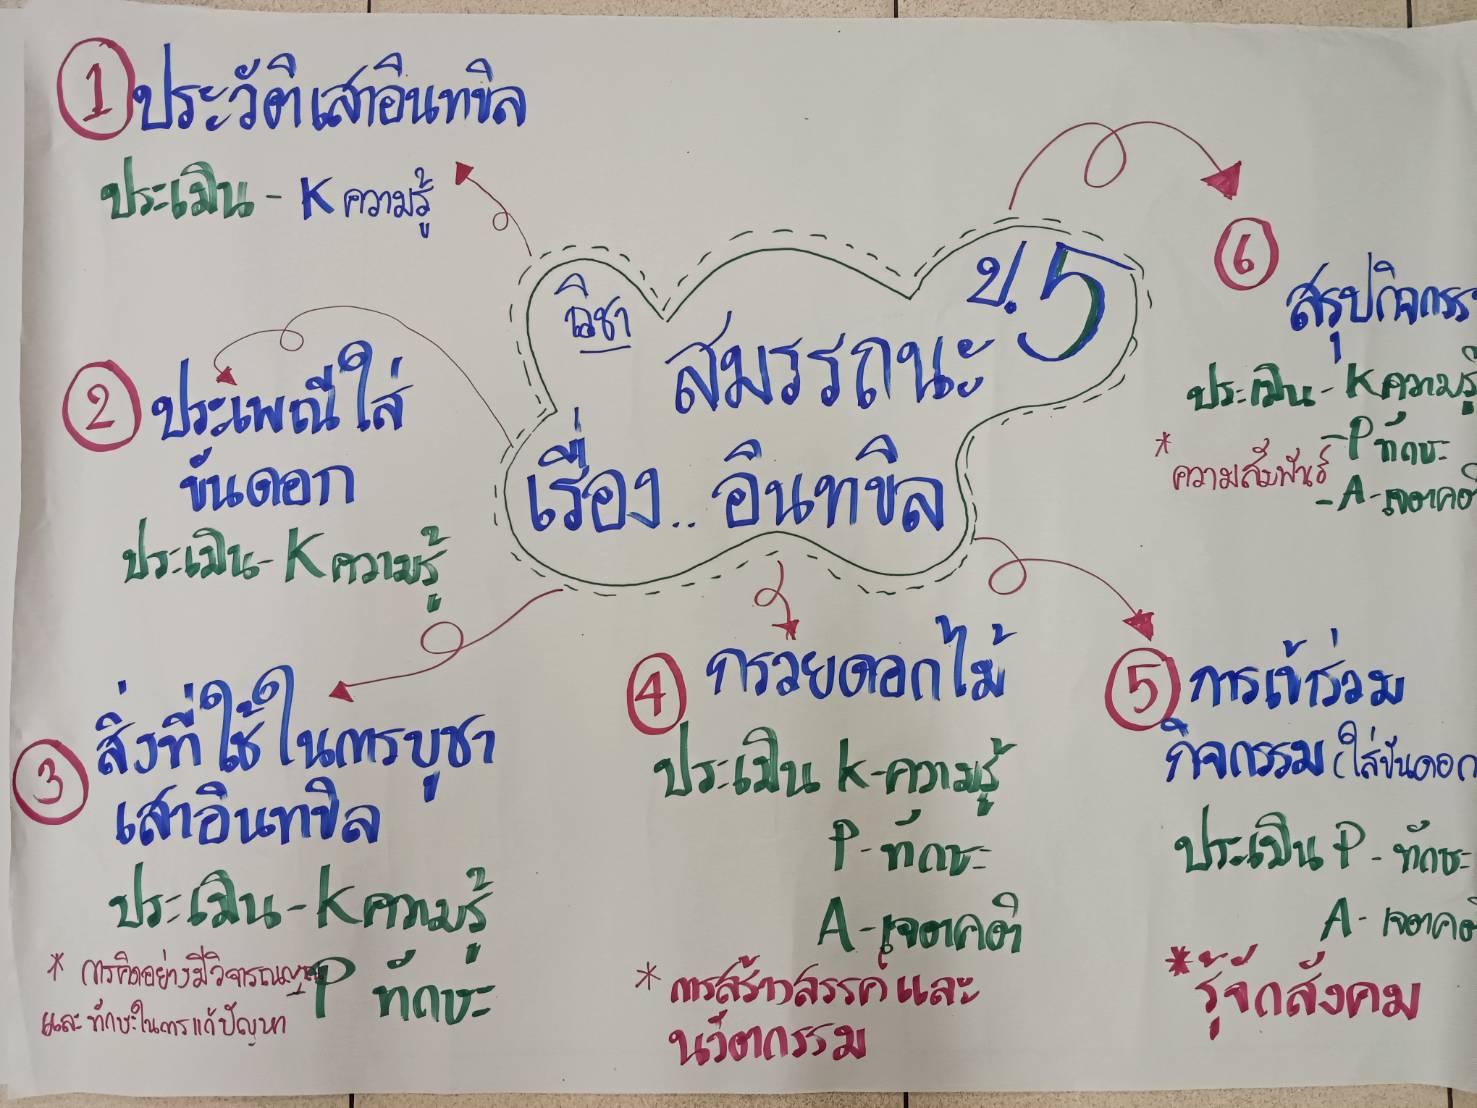 วิชา
สมรรถนะ ป.5
เรื่อง.. อินทขิล
1 ประวัติเสาอินทขิล
ประเมิน - K ความรู้
2 ประเพณีใส่
ขันดอก
ประเมิน - K ความรู้
3 สิ่งที่ใช้ในการบูชา
เสาอินทขิล
ประเมิน - K ความรู้
- P ทักษะ
* การคิดอย่างมีวิจารณญาณ
และทักษะในการแก้ปัญหา
4 กรวยดอกไม้
ประเมิน K - ความรู้
P - ทักษะ
A - เจตคติ
* การสร้างสรรค์และ
นวัตกรรม
5 การเข้าร่วม
กิจกรรม (ใส่ขันดอก
ประเมิน P - ทักษะ
A - เจตคติ
* รู้จักสังคม
6
สรุปกิจกรร
ประเมิน - K ความรู้
- P ทักษะ
- A - เจตคติ
* ความสัมพันธ์